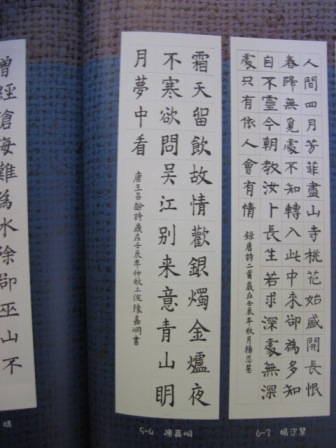 人間四月芳菲盡山寺桃花始盛開長恨
春歸無覓處不知轉入此中來卻為多知
自不靈今朝教汝卜長生若求深處無深
處只有依人會有情 錄唐詩二首歲在壬辰年秋月楊
6-7 楊
霜天留飲故情歡銀燭金爐夜
不寒欲問吳江別来意青山明
月夢中看 唐王昌齡詩歲在壬辰年仲秋上浣陳嘉峒書
5-6 陳嘉峒
曾經滄海難為水除卻巫山不